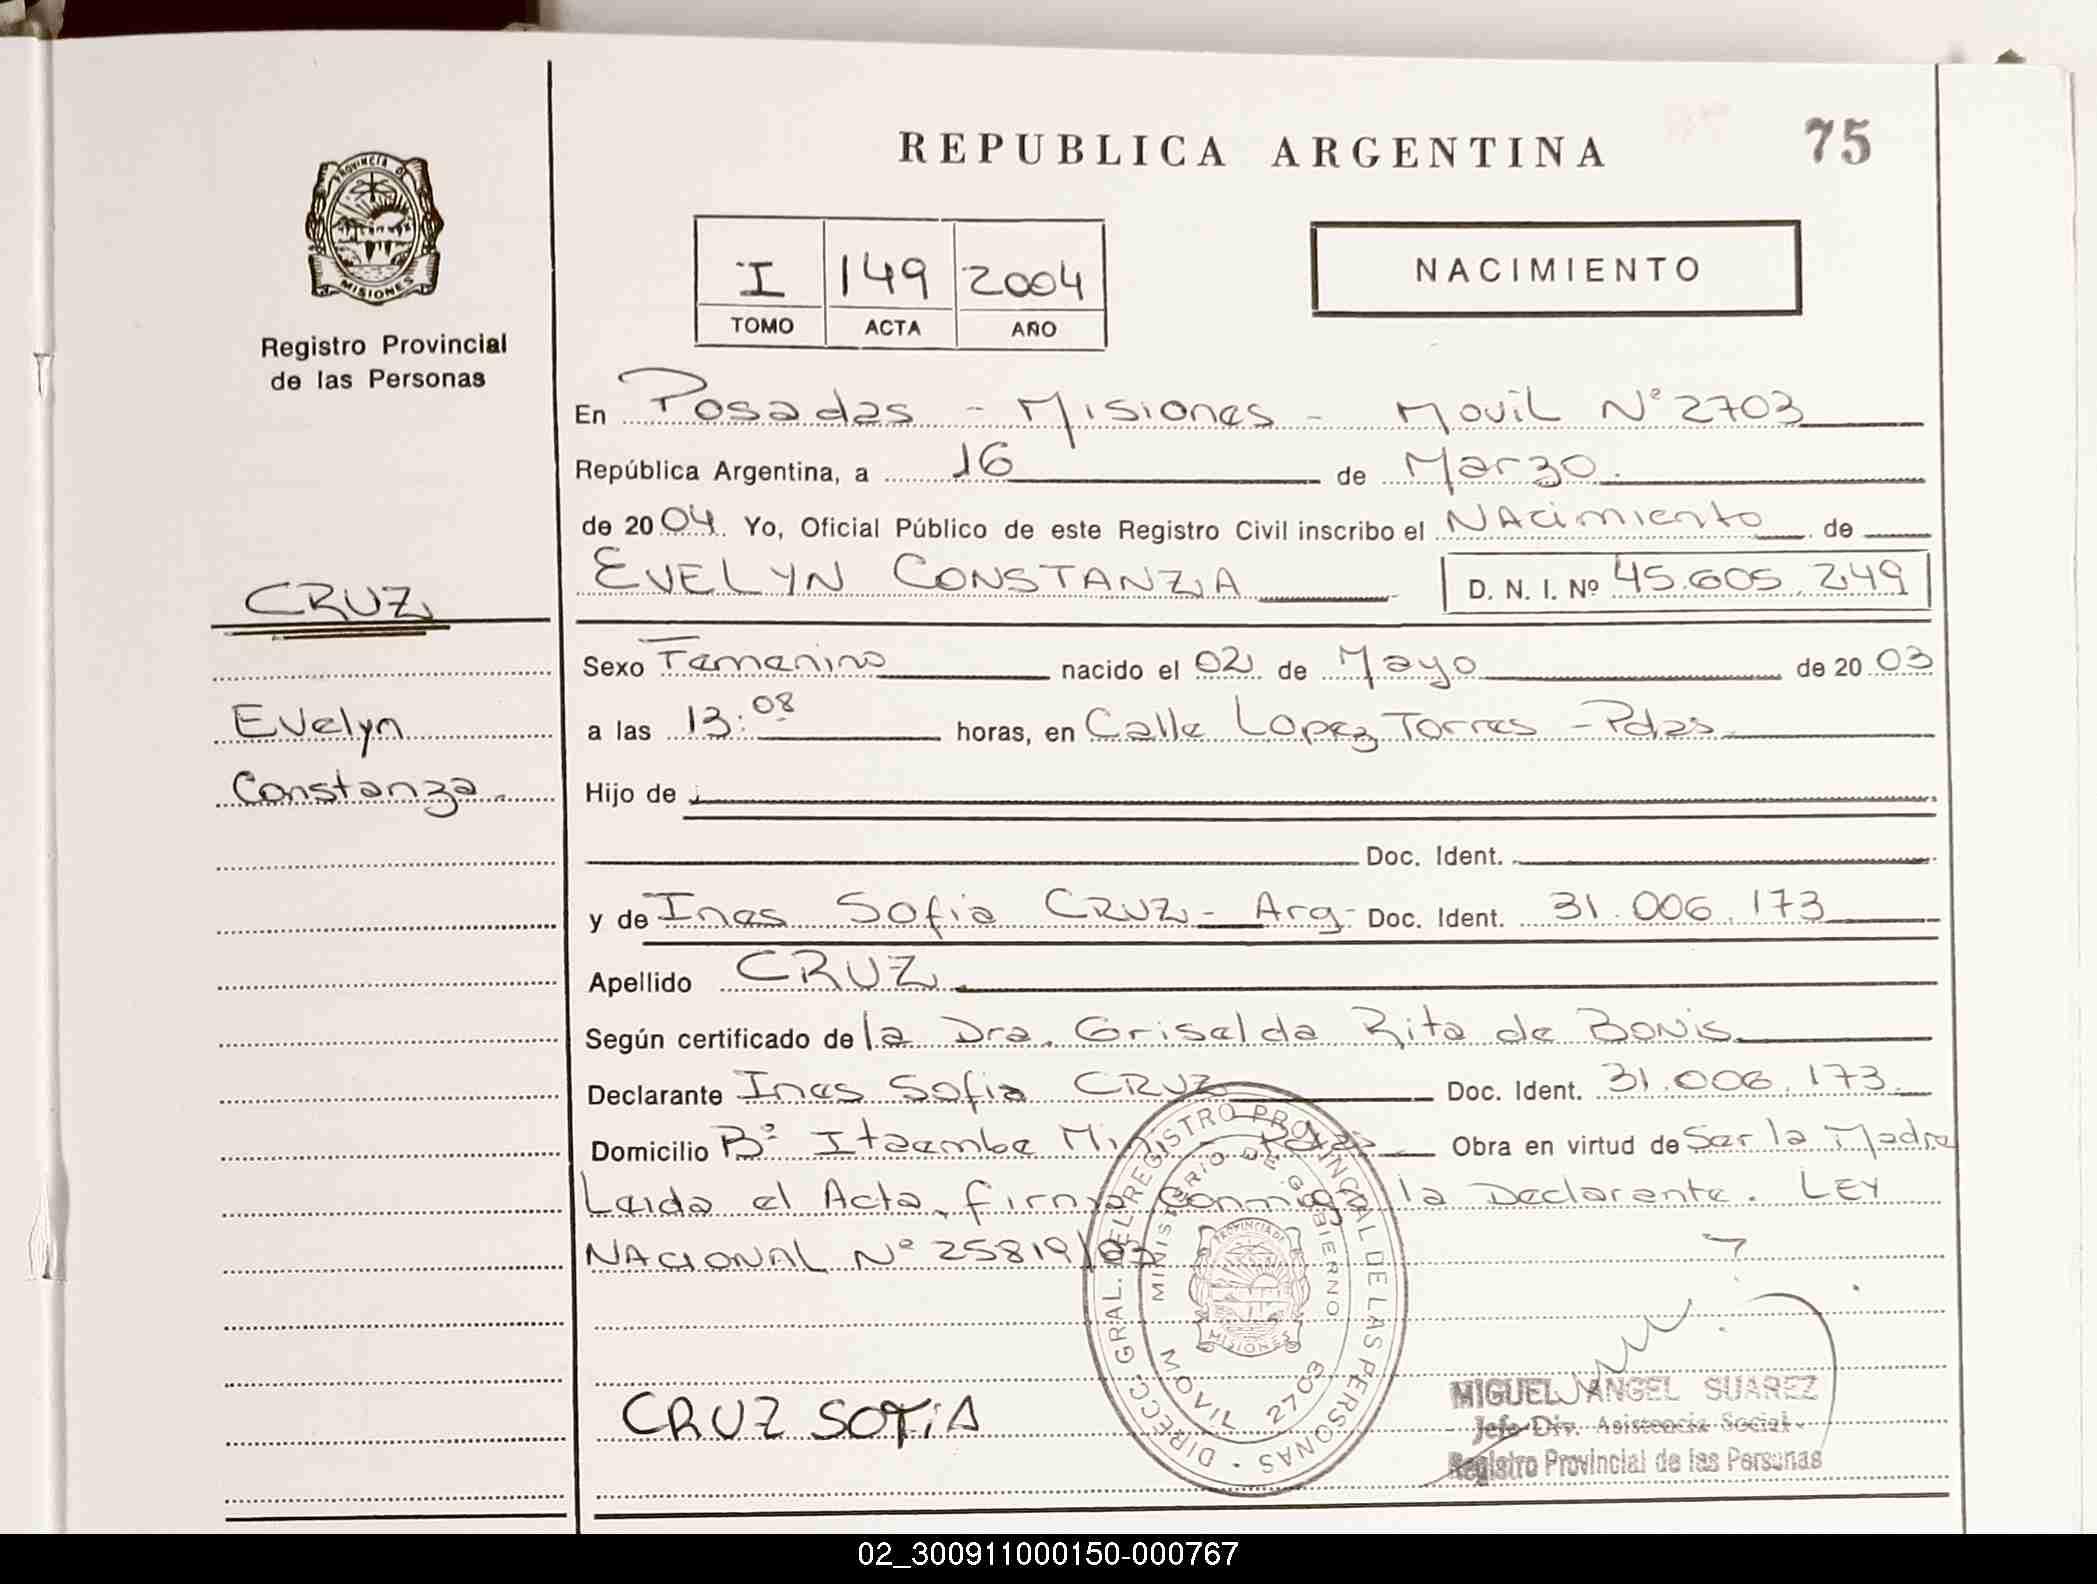 REPUBLICA ARGENTINA
75
PROVINCIA DE
MISIONES
Registro Provincial
de las Personas
I 149 2004
TOMO ACTA AÑO
NACIMIENTO
En Posadas - Misiones - Movil N° 2703
República Argentina, a 16 de Marzo.
de 2004. Yo, Oficial Público de este Registro Civil inscribo el NAcimiento de
EVELYN CONSTANZA D. N. I. Nº 45.605.249
CRUZ
Evelyn
Constanza.
Sexo Femenino nacido el 02 de Mayo de 2003
a las 13:08 horas, en Calle Lopez Torres - Pdas
Hijo de
Doc. Ident.
y de Ines Sofia CRUZ - Arg- Doc. Ident. 31.006.173
Apellido CRUZ
Según certificado de la Dra. Griselda Rita de BONIS
Declarante Ines Sofia CRUZ Doc. Ident. 31.006.173
Domicilio B° Itaembe Mini - Pdas Obra en virtud de Ser la Madre
Leida el Acta, firma conmigo la Declarante. LEY
NACIONAL N° 25819/03
CRUZ SOFIA
DIRECC. GRAL. DEL REGISTRO PROVINCIAL DE LAS PERSONAS
MINISTERIO DE GOBIERNO
PROVINCIA DE
MISIONES
MOVIL 2703
MIGUEL ANGEL SUAREZ
Jefe Div. Asistencia Social
Registro Provincial de las Personas
02_300911000150-000767